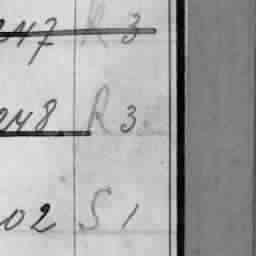 247 R 3
248 R 3
02 S 1